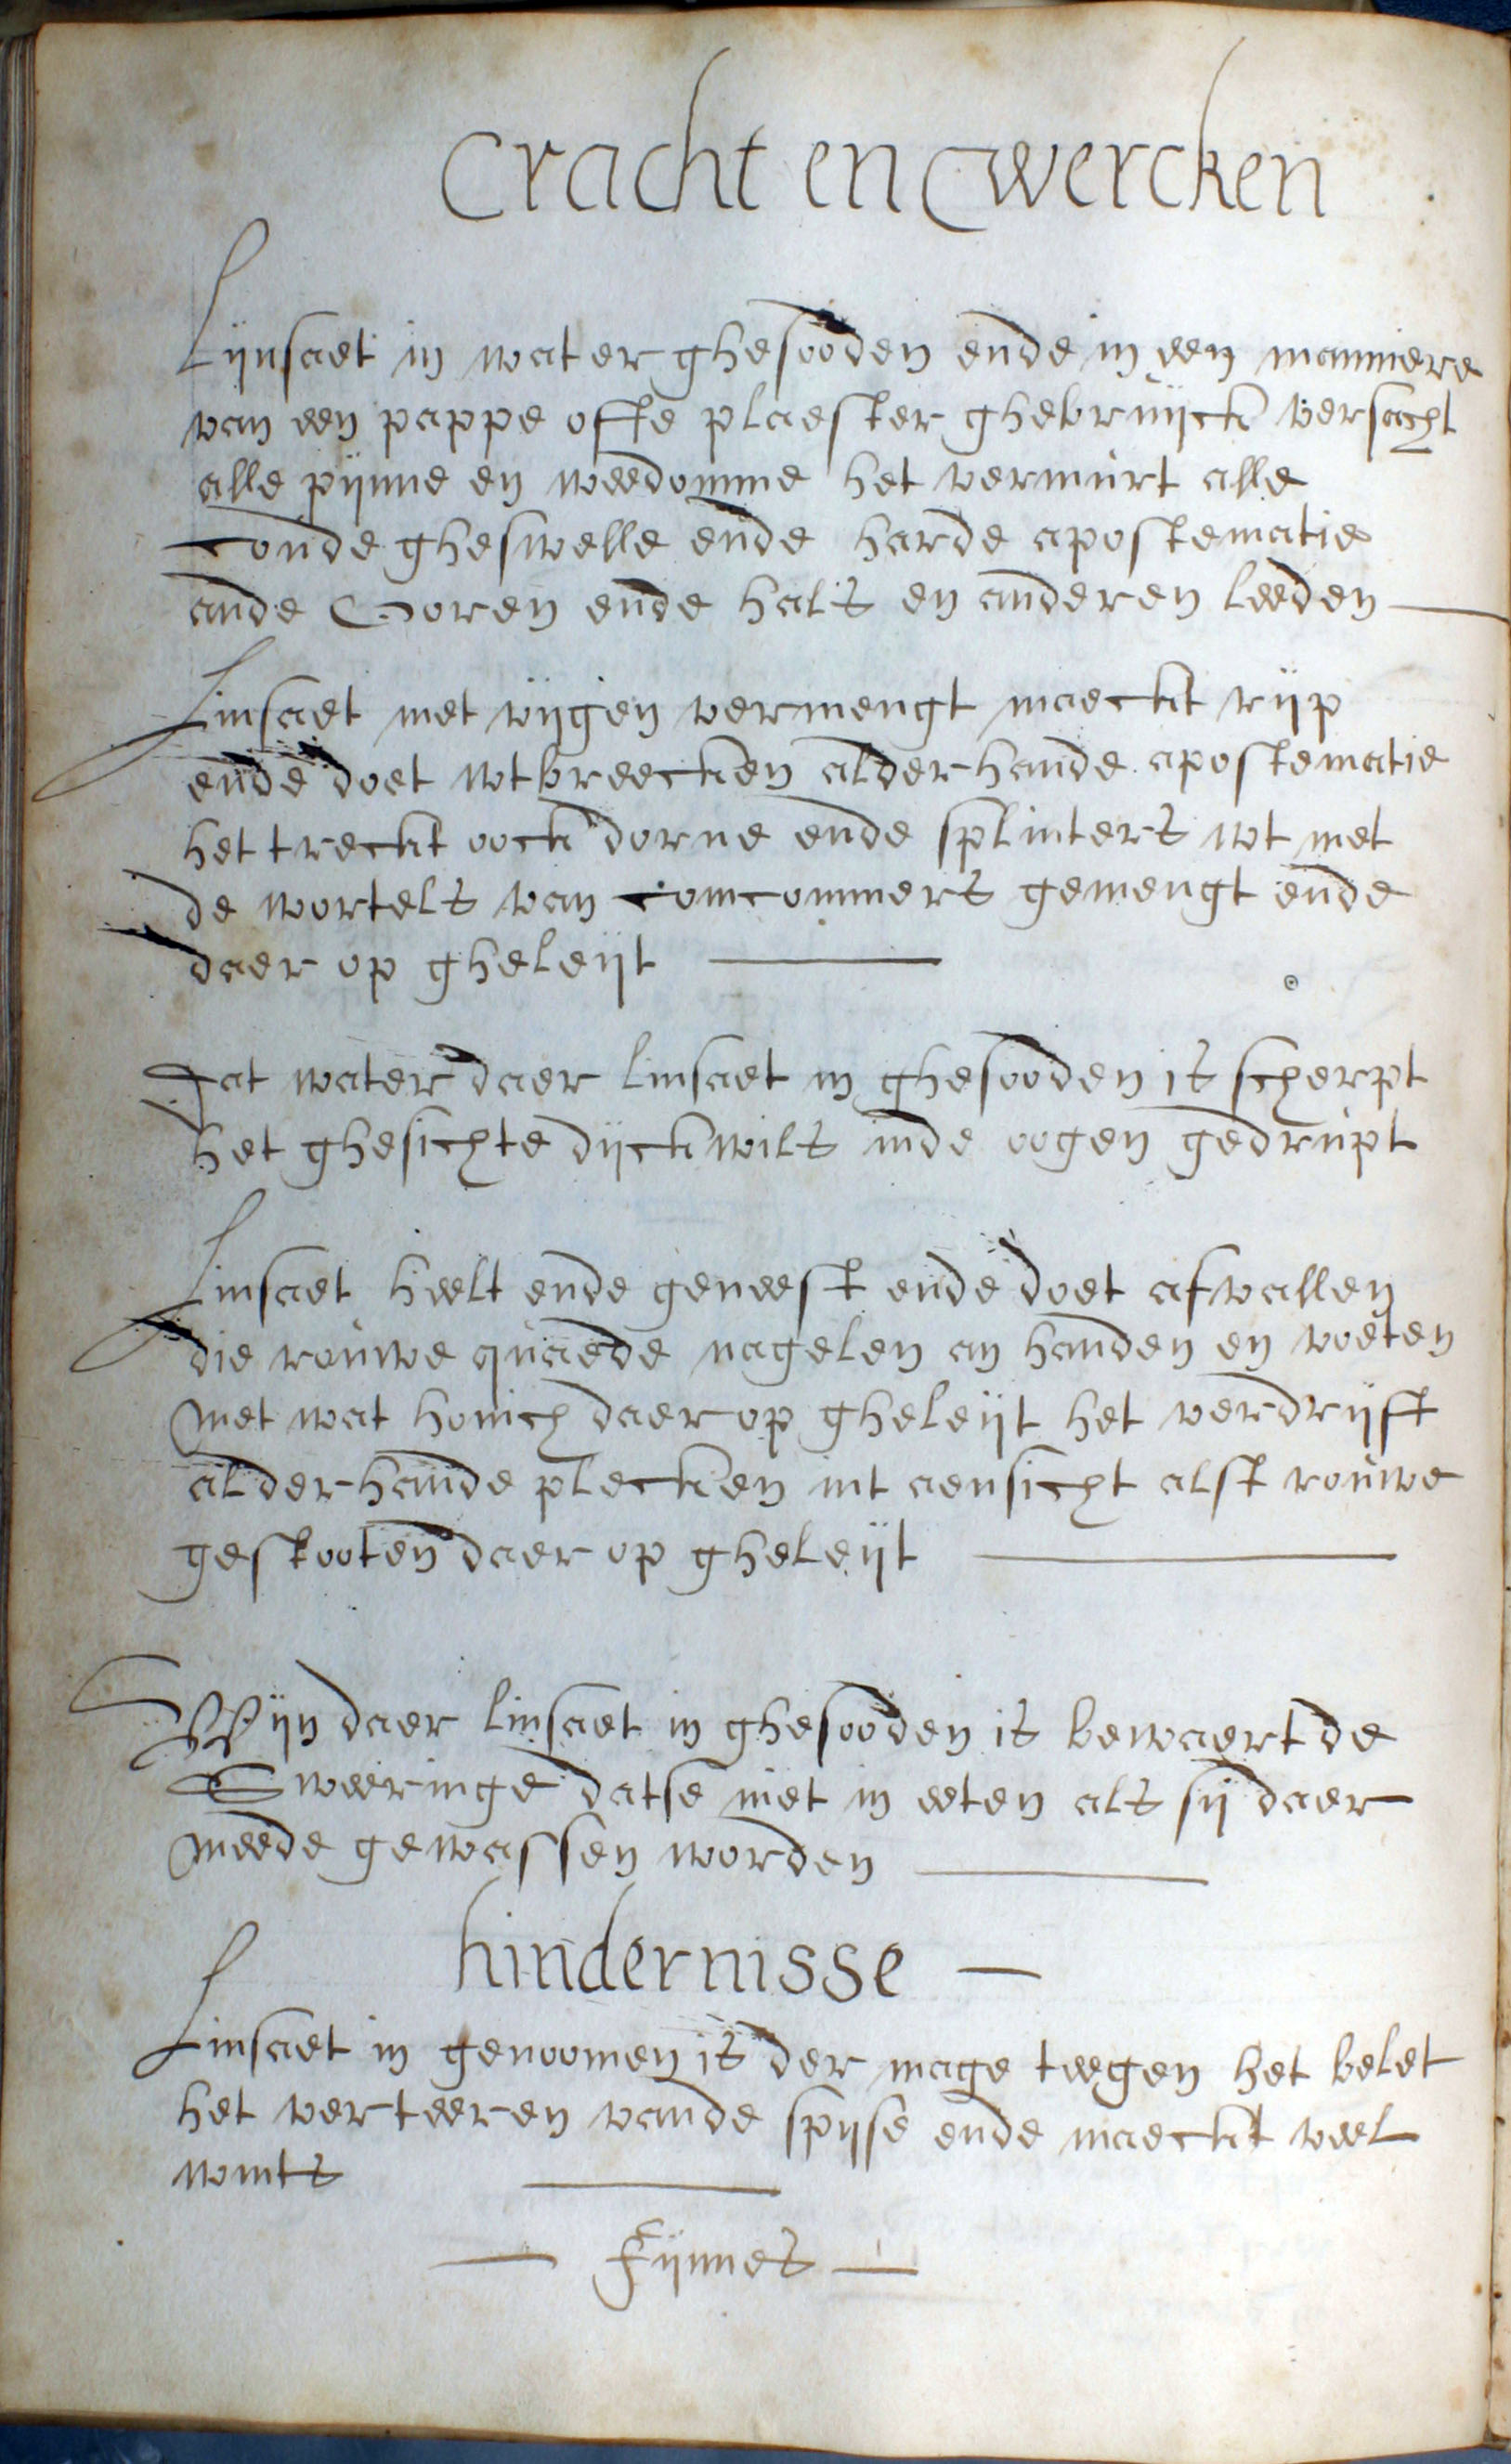 Cracht en Cwercken
Lijnsaet in water ghesooden ende in een manniere
van een pappe offte plaester ghebruijckt versacht
alle pijnne en weedomme het vermurt alle
coude gheswelle ende harde apostematie
ande Ooren ende hals en anderen leeden
Linsaet met vijgen vermengt maeckt rijp
ende doet wtbreecken alderhande apostematie
het treckt oock dorne ende splinters wt met
de wortels van comcommers gemengt ende
daer op gheleijt
Dat water daer linsaet in ghesooden is scherpt
het ghesichte dijckwils inde oogen gedrupt
Linsaet heelt ende geneest ende doet afvallen
die rouwe quaede nagelen an handen en voeten
Met wat honich daer op gheleijt het verdrijft
alderhande plecken int aensicht alst rouwe
gestooten daer op gheleijt
Wijn daer linsaet in ghesooden is bewaert de
Sweeringe datse niet in eeten als sij daer
meede gewassen worden
hindernisse
Linsaet in genoomen is der mage teegen het belet
het verteeren vande spijse ende maeckt veel
wints
Fijnnes